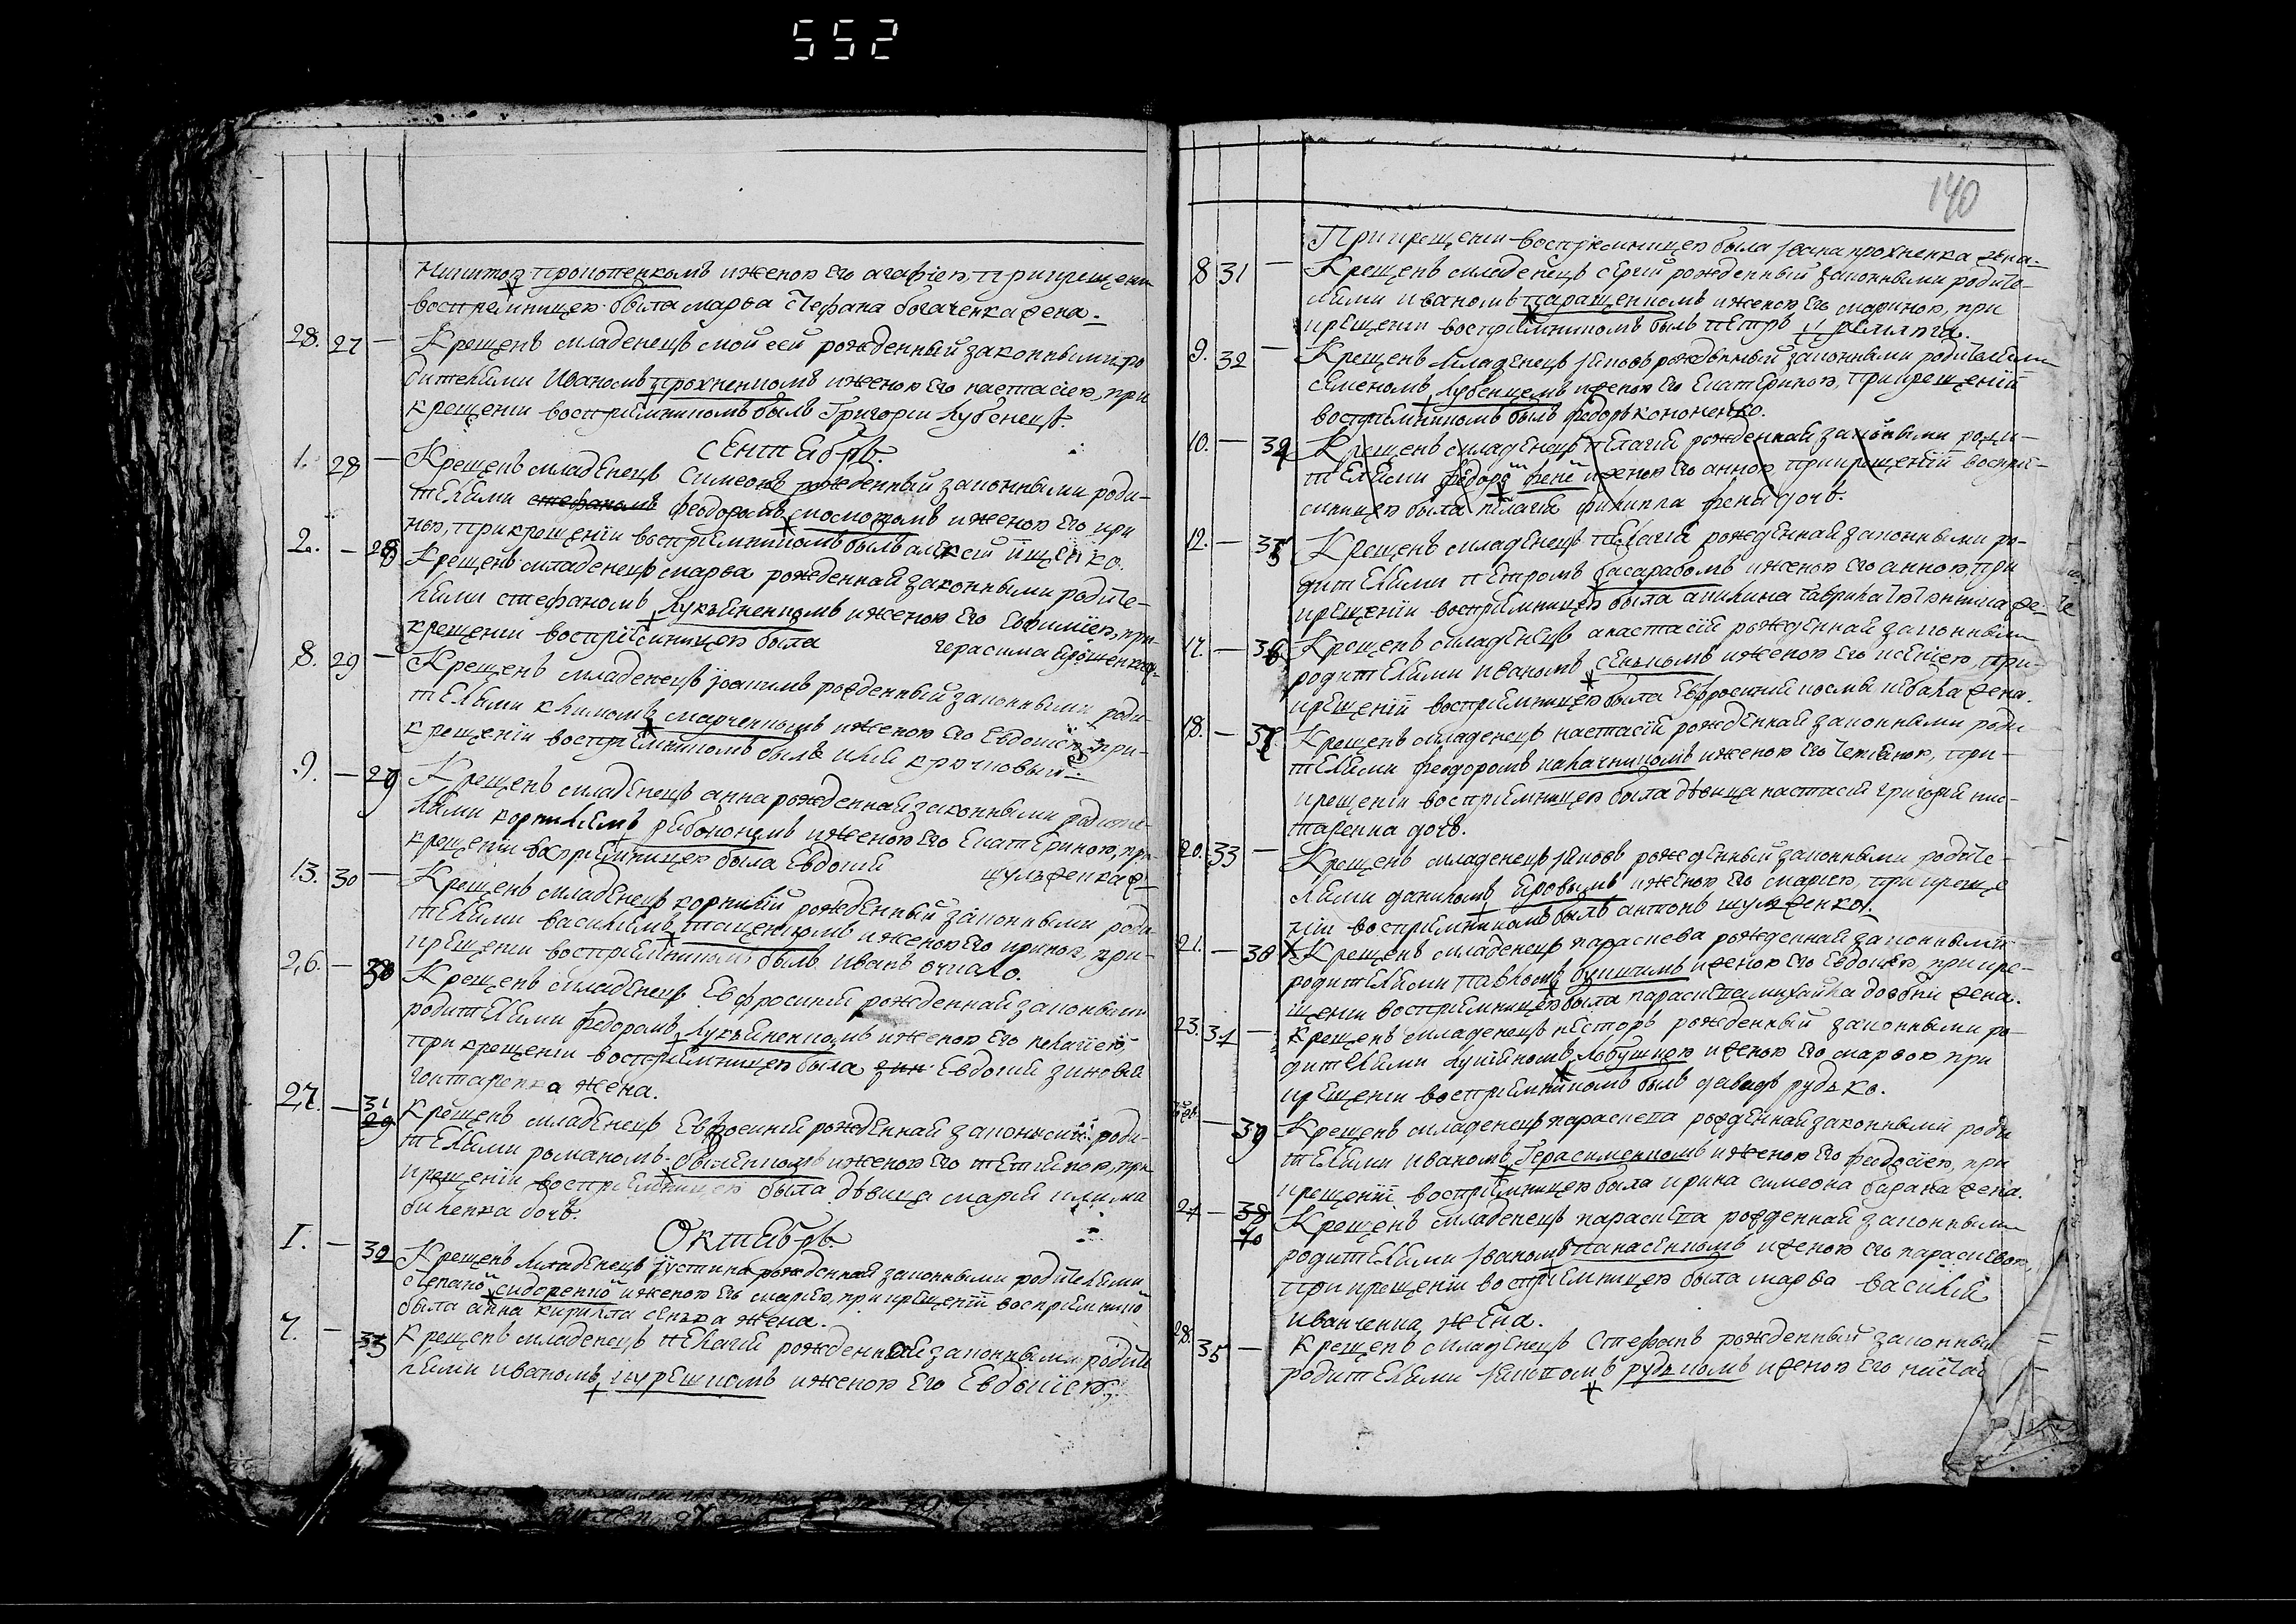 552
Никитою прокопенкомъ и женою его агафіею, при крещеніи
восприемницею была марва Стефана богаченка жена.
28. 27 — Крещенъ младенецъ мойсей рожденный законными ро
дителями Иваномъ прохненкомъ и женою его настасіею, при
крещеніи восприемникомъ былъ Григорій Лубенецъ.
Сентябрь.
1. 28 — Крещенъ младенецъ Симеонъ рожденный законными роди-
телями стефаномъ феодоромъ и женою его ири
ною, при крещеніи восприемникомъ былъ алексѣй ищенко.
2. — 28 Крещенъ младенецъ марва рожденная законными родите-
лями стефаномъ Лукьяненкомъ и женою его Евфиміею, при
крещеніи восприемницею была герасима
8. 29 — Крещенъ младенецъ Іоакимъ рожденный законными роди-
телями климомъ марченкомъ и женою его Евдокіею, при-
крещеніи восприемникомъ былъ илія крючковый.
9. — 29 Крещенъ младенецъ анна рожденная законными родите-
лями корниліемъ рябоконемъ и женою его Екатериною, при
крещеніи восприемницею была Евдокія шулженка ж-
13. 30 — Крещенъ младенецъ корнилій рожденный законными роди
телями василіемъ тащенкомъ и женою его ириною, при-
крещеніи восприемникомъ былъ Иванъ очкало.
26. — 30 Крещенъ младенецъ Евфросинія рожденная законными
родителями федоромъ Лукьяненкомъ и женою его пелагіею
при крещеніи восприемницею была зин Евдокія зиновія
гонтаренка жена.
27. — 31 29 Крещенъ младенецъ Евфросинія рожденная законными роди-
телями романомъ и женою его тетяною, при
крещеніи восприемницею была дѣвица марія клима
биленка дочь.
Октябрь.
1. — 32 Крещенъ младенецъ Іустина рожденная законными родителями
степаномъ сидоренко и женою его маріею, при крещеніи восприемницею
была анна кирилла сенька жена.
7. — 33 Крещенъ младенецъ пелагія рожденная законными родите
лями иваномъ курешкомъ и женою его Евдокіею,
140
При крещеніи восприемницею была Іоана прохненка жена.
8 31 — Крещенъ младенецъ сергій рожденный законными родите-
лями иваномъ паращенкомъ и женою его мариною, при
крещеніи восприемникомъ былъ петръ
9. 32 — Крещенъ младенецъ Іяковъ рожденный законными родителями
семеномъ Лубенцемъ и женою его Екатериною, при крещеніи
восприемникомъ былъ федоръ кононенко.
10. — 34 Крещенъ младенецъ пелагія рожденная законными роди-
телями федоромъ и женою его анною при крещеніи воспрі-
емницею была пелагія филиппа дочь.
12. — 35 Крещенъ младенецъ пелагія рожденная законными ро-
дителями петромъ басарабомъ и женою его анною, при
крещеніи восприемницею была акилина гаврила
17. — 36 Крещенъ младенецъ анастасія рожденная законными
родителями иваномъ сенькомъ и женою его ксеніею, при-
крещеніи восприемницею была Евфросинія козмы жена.
18. — 37 Крещенъ младенецъ настасія рожденная законными роди-
телями феодоромъ калачникомъ и женою его тетяною, при-
крещеніи восприемницею была дѣвица настасія григорія
дочь.
20. 33 — Крещенъ младенецъ Іяковъ рожденный законными родите-
лями даниломъ и женою его маріею, при креще
ніи восприемникомъ былъ антонъ шулженко.
21. — 38 Крещенъ младенецъ параскева рожденная законными
родителями павломъ и женою его Евдокіею, при кре-
щеніи восприемницею была параскева михайла довбни жена.
23. 34 — Крещенъ младенецъ несторъ рожденный законными ро-
дителями лукіяномъ лобушкою и женою его марвою при
крещеніи восприемникомъ былъ давидъ рудько.
— 39 Крещенъ младенецъ параскева рожденная законными роди
телями иваномъ Герасименкомъ и женою его феодосіею, при
крещеніи восприемницею была ирина симеона барана жена.
24 — 38 40 Крещенъ младенецъ параскева рожденная законными
родителями Іваномъ панасенкомъ и женою его параскевою,
при крещеніи восприемницею была марва василія
иванченка жена.
28. 35 — Крещенъ младенецъ Стефанъ рожденный законны
родителями рудькомъ и женою его